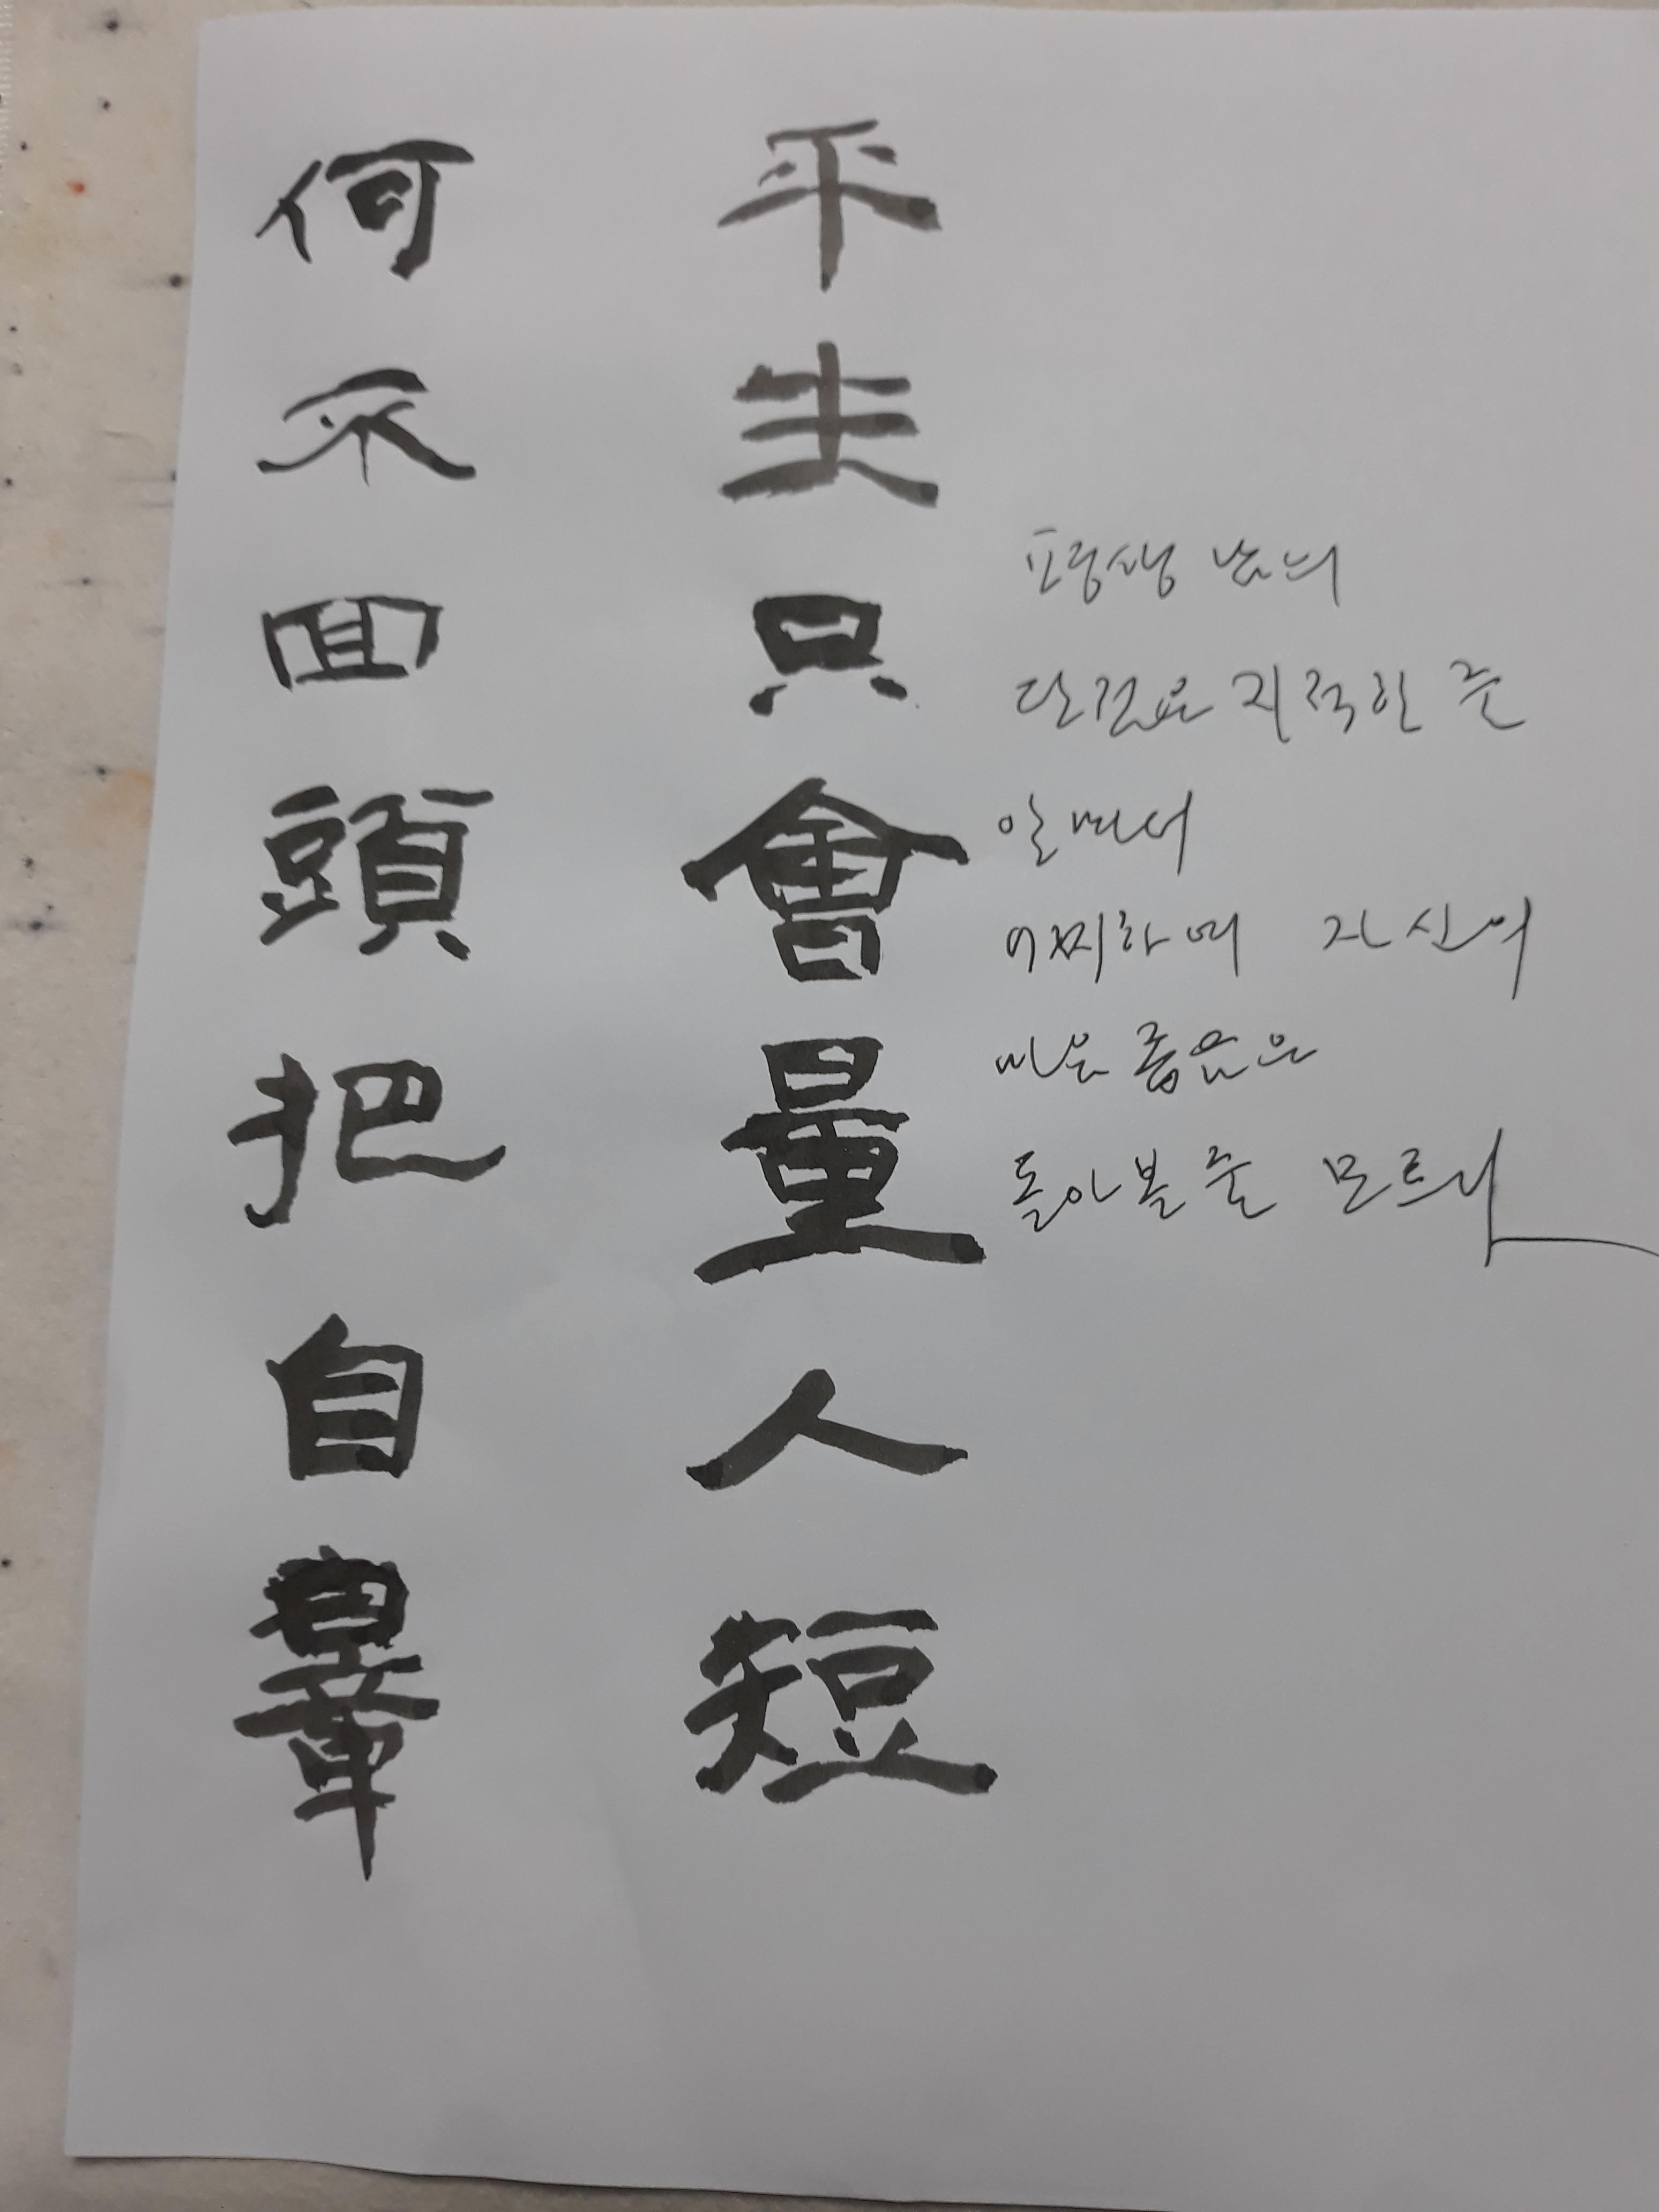 平生只會量人短
何不回頭把自量
평생 남의
단점은 지적할 줄
알면서
어찌하여 자신의
좁음은
돌아볼 줄 모르나